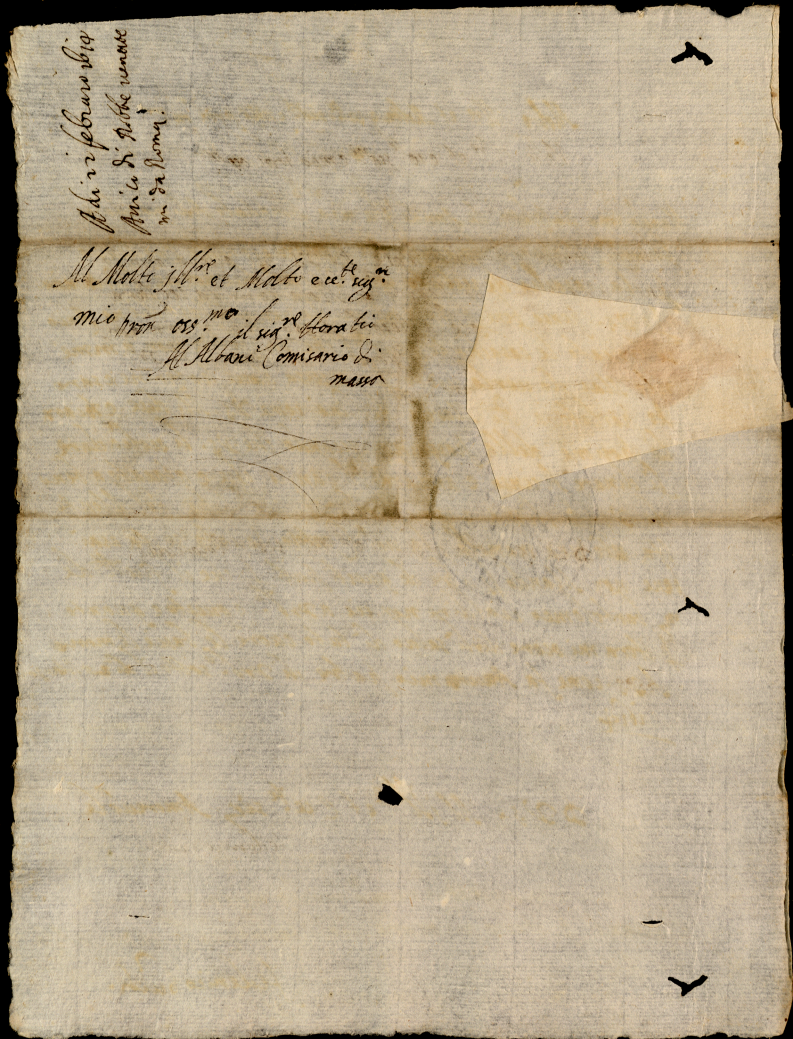 Adi 21 febraro 1619
Aviso di Robbe venute
mi da Roma
Al Molto Ill.re et Molto ecc.te sig.r
mio pron oss.mo il sig.re Horatio
Al Albani Comisario di
massa